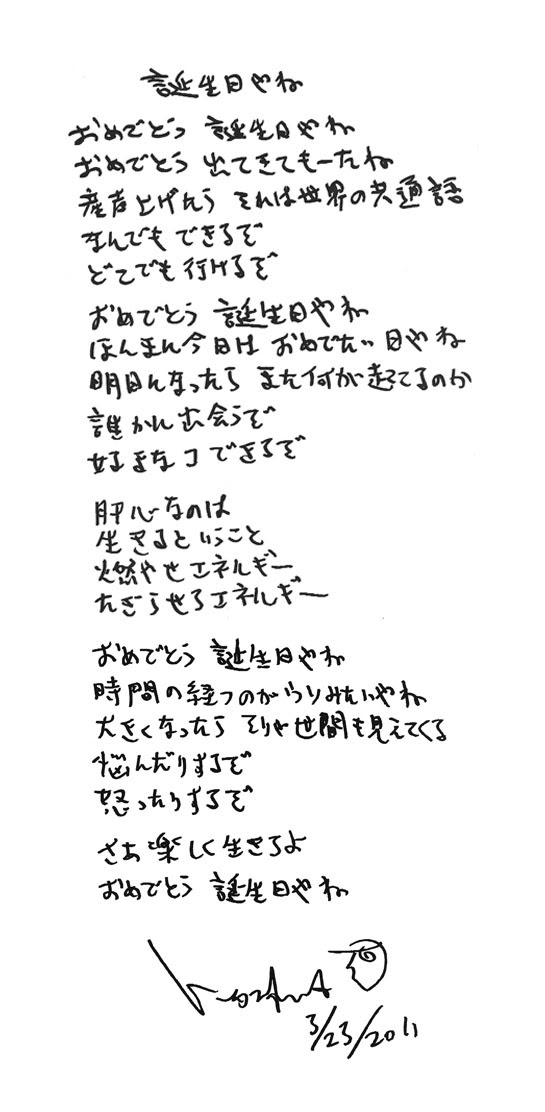 誕生日やね
おめでとう 誕生日やね
おめでとう 出てきてもーたね
産声上げたら それは世界の共通語
なんでも できるぞ
どこでも 行けるぞ
おめでとう 誕生日やね
ほんまに今日は おめでたい日やね
明日になったら また何が起こるのか
誰かに出会うぞ
好きなコ できるぞ
肝心なのは
生きるということ
燃やせエネルギー
たぎらせろエネルギー
おめでとう 誕生日やね
時間の経つのが うそみたいやね
大きくなったら そりゃ世間も見えてくる
悩んだりするぞ
怒ったりするぞ
さあ 楽しく生きろよ
おめでとう 誕生日やね
3/23/2011